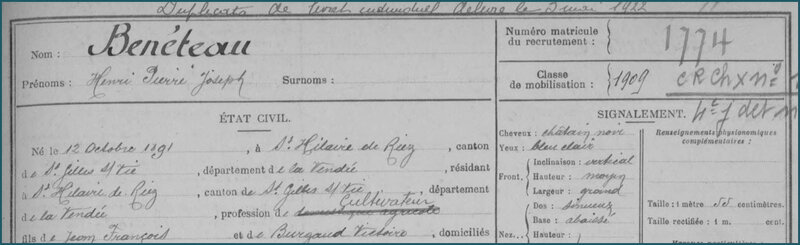 Duplicata de livret individuel délivré le 3 mai 1922
Nom : Benéteau
Prénoms : Henri Pierre Joseph Surnoms :
Numéro matricule du recrutement : 1774
Classe de mobilisation : 1909
ÉTAT CIVIL.
Né le 12 Octobre 1891, à St Hilaire de Riez, canton
de St Gilles s/ Vie, département de la Vendée, résidant
à St Hilaire de Riez, canton de St Gilles s/ Vie, département
Cultivateur
de la Vendée, profession de domestique agricole
fils de Jean François et de Burgaud Victoire, domiciliés
SIGNALEMENT.
Cheveux : châtain noir
Yeux : bleu clair
Front. Inclinaison : vertical
Hauteur : moyen
Largeur : grand
Nez... Dos : sinueux
Base : abaissé
Hauteur :
Renseignements physionomiques
complémentaires :
Taille : 1 mètre 55 centimètres.
Taille rectifiée : 1 m. cent.